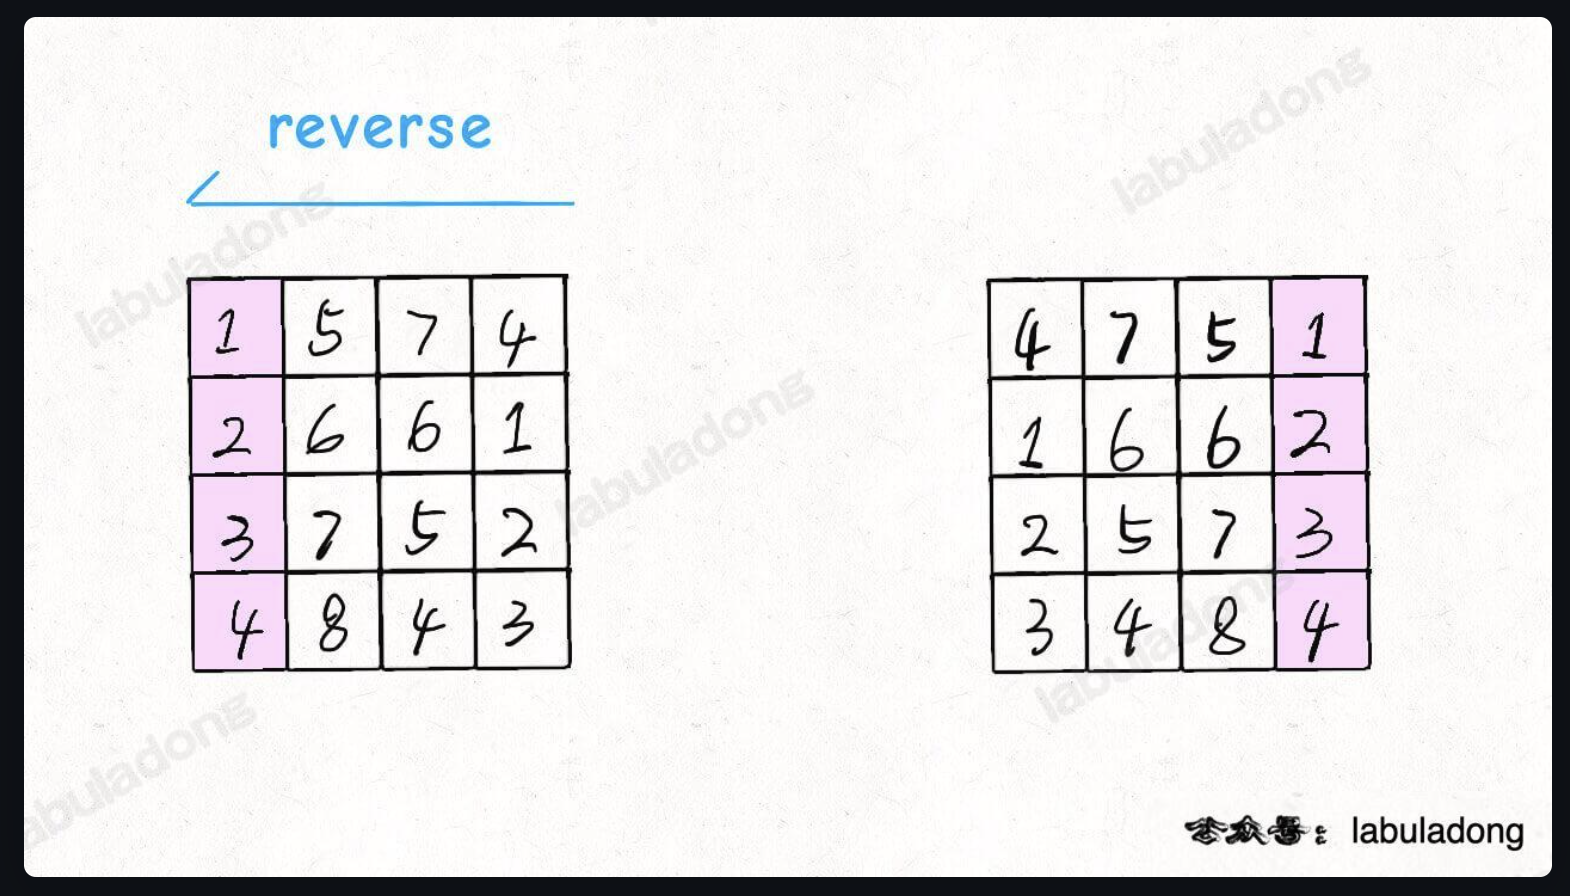 reverse
1 5 7 4
2 6 6 1
3 7 5 2
4 8 4 3
4 7 5 1
1 6 6 2
2 5 7 3
3 4 8 4
labuladong
labuladong
labuladong
labuladong
labuladong
公众号: labuladong